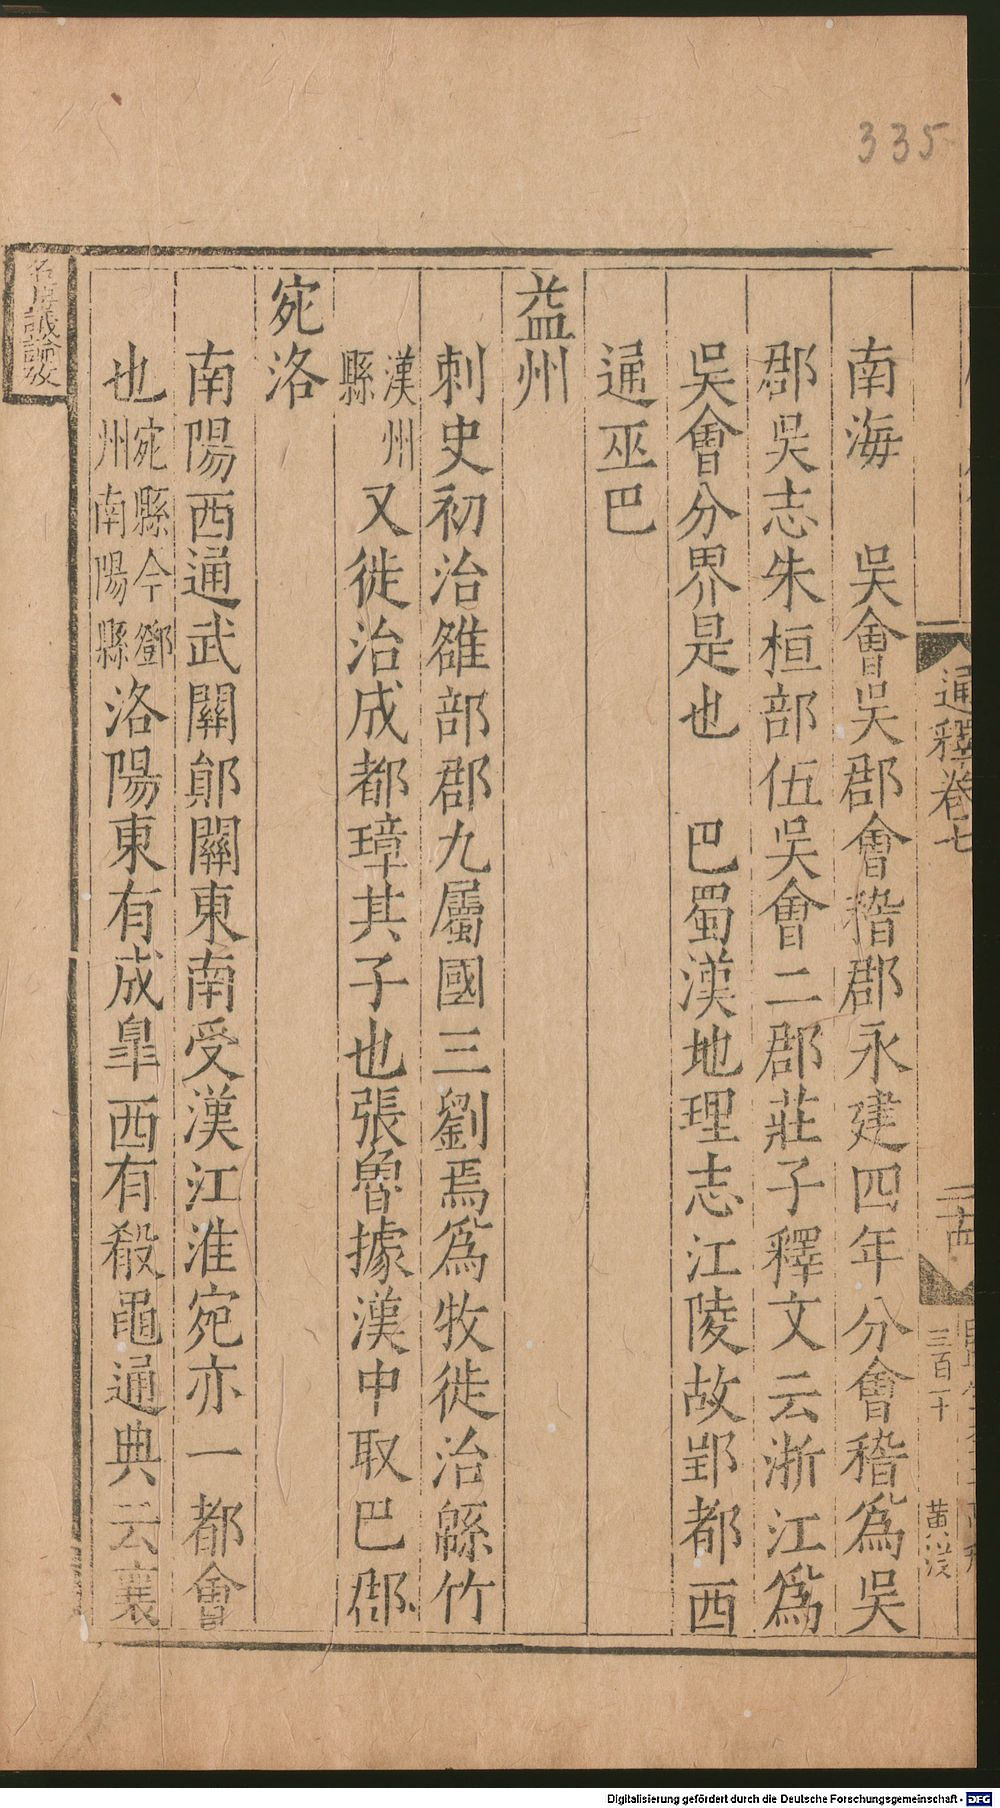 335
通釋卷七
三百一十
南海　吳會吳郡會稽郡永建四年分會稽爲吳
郡吳志朱桓部伍吳會二郡莊子釋文云浙江爲
吳會分界是也　巴蜀漢地理志江陵故郢都西
通巫巴
益州
刺史初治雒部郡九屬國三劉焉爲牧徙治緜竹
漢州
縣
又徙治成都璋其子也張魯據漢中取巴郡
宛洛
南陽西通武關鄖關東南受漢江淮宛亦一都會
也
宛縣今鄧
州南陽縣
洛陽東有成臯西有殽黽通典云襄
Digitalisierung gefördert durch die Deutsche Forschungsgemeinschaft - DFG